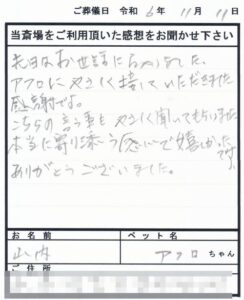 ご葬儀日 令和 6年 11月 11日
当斎場をご利用頂いた感想をお聞かせ下さい
先日はお世話になりました。
アフロにやさしく接していただきました
感謝です。
こちらの言う事もやさしく聞いてもらいました
本当に寄り添う感じで嬉しかったです。
ありがとうございました。
お名前 ペット名
山内 アフロちゃん
ご住所